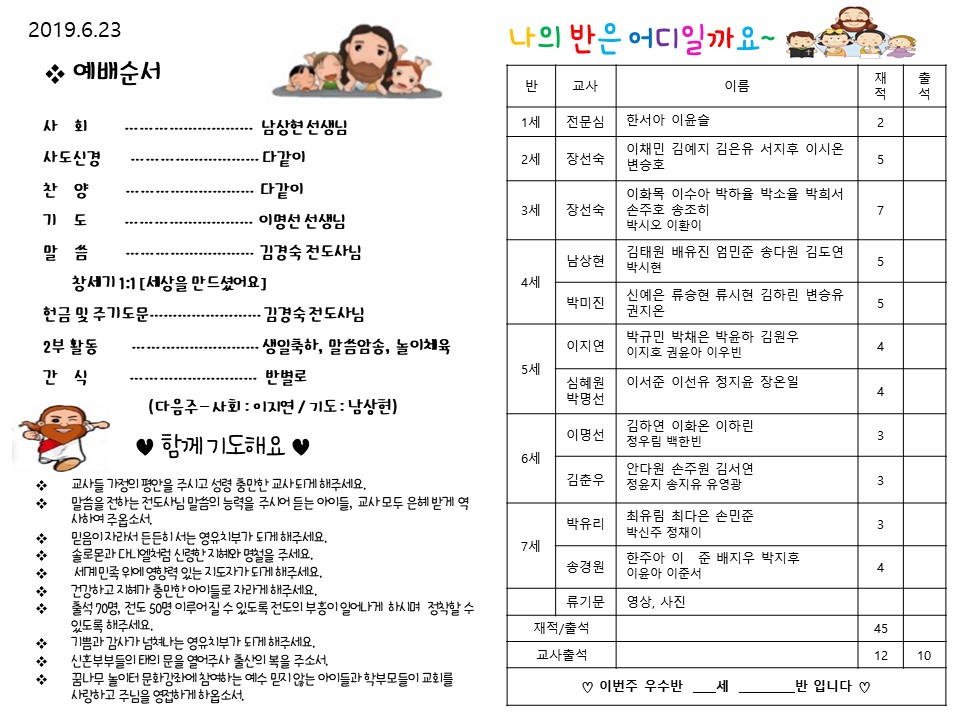 2019.6.23
❖ 예배순서
사 회 ------------------------- 남상현 선생님
사도신경 ------------------------- 다같이
찬 양 ------------------------- 다같이
기 도 ------------------------- 이명선 선생님
말 씀 ------------------------- 김경숙 전도사님
창세기 1:1 [세상을 만드셨어요]
헌금 및 주기도문------------------------ 김경숙 전도사님
2부 활동 ------------------------- 생일축하, 말씀암송, 놀이체육
간 식 ------------------------- 반별로
(다음주 – 사회 : 이지연 / 기도 : 남상현)
♥ 함께 기도해요 ♥
❖ 교사들 가정의 평안을 주시고 성령 충만한 교사 되게 해주세요.
❖ 말씀을 전하는 전도사님 말씀의 능력을 주시어 듣는 아이들, 교사 모두 은혜 받게 역
사하여 주옵소서.
❖ 믿음이 자라서 든든히 서는 영유치부가 되게 해주세요.
❖ 솔로몬과 다니엘처럼 신령한 지혜와 명철을 주세요.
❖ 세계 민족 위에 영향력 있는 지도자가 되게 해주세요.
❖ 건강하고 지혜가 충만한 아이들로 자라게 해주세요.
❖ 출석 70명, 전도 50명 이루어 질 수 있도록 전도의 부흥이 일어나게 하시며 정착할 수
있도록 해주세요.
❖ 기쁨과 감사가 넘쳐나는 영유치부가 되게 해주세요.
❖ 신혼부부들의 태의 문을 열어주사 출산의 복을 주소서.
❖ 꿈나무 놀이터 문화강좌에 참여하는 예수 믿지 않는 아이들과 학부모들이 교회를
사랑하고 주님을 영접하게 하옵소서.
나의 반은 어디일까요~
반 교사 이름 재적 출석
1세 전문심 한서아 이윤슬 2
2세 장선숙 이채민 김예지 김은유 서지후 이시온
변승호 5
3세 장선숙 이화목 이수아 박하율 박소율 박희서
손주호 송조히
박시오 이환이 7
4세 남상현 김태원 배유진 엄민준 송다원 김도연
박시현 5
박미진 신예은 류승현 류시현 김하린 변승유
권지온 5
5세 이지연 박규민 박채은 박윤하 김원우
이지호 권윤아 이우빈 4
심혜원
박명선 이서준 이선유 정지윤 장온일 4
6세 이명선 김하연 이화온 이하린
정우림 백한빈 3
김준우 안다원 손주원 김서연
정윤지 송지유 유영광 3
7세 박유리 최유림 최다은 손민준
박신주 정채이 3
송경원 한주아 이 준 배지우 박지후
이윤아 이준서 4
류기문 영상, 사진
재적/출석 45
교사출석 12 10
♡ 이번주 우수반 ___세 ________반 입니다 ♡